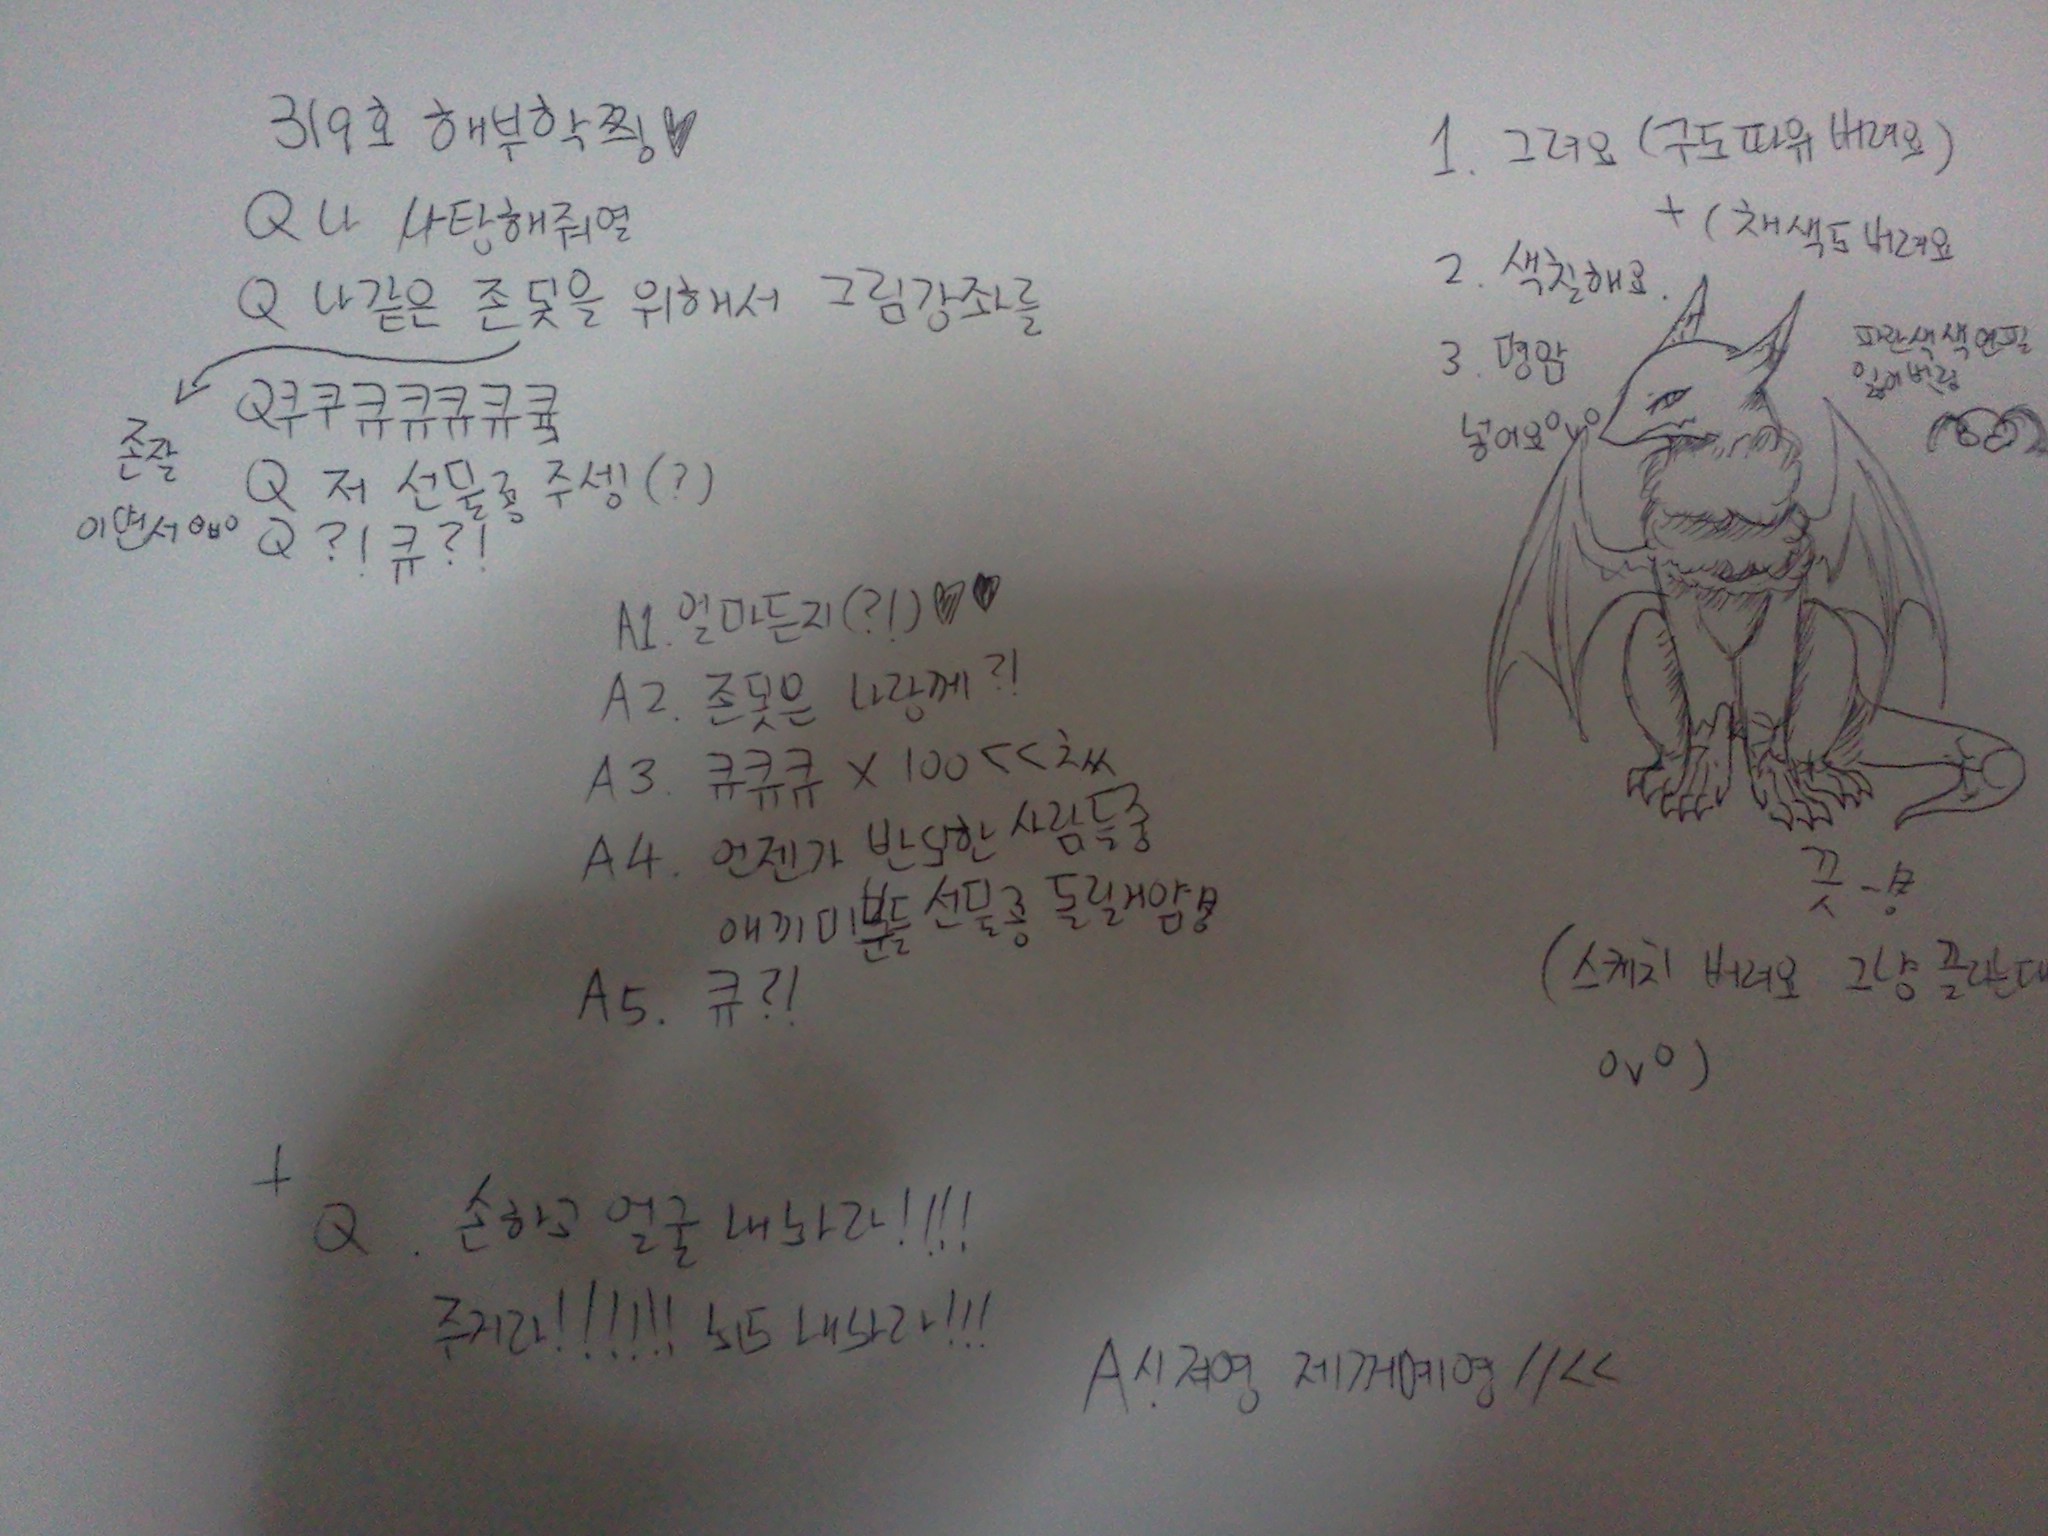 319호 해부학찡♥
Q 나 사탕해줘열
Q 나같은 존못을 위해서 그림강좌를
Q쿠쿠큐큐큐큐큨
존잘
이면서
Q 저 선물좀 주셍(?)
Q ?! 큐?!
A1. 얼마든지(?!)♥♥
A2. 존못은 나랑께?!
A3. 큐큐큐 X 100<<
A4. 언젠가 반모한 사람들중
애끼미분들 선물좀 돌릴게얌
A5. 큐?!
+
Q. 손하고 얼굴 내놔라!!!!
주거라!!!!!! 뇌도 내놔라!!!
A 시져영 제꺼예영 //<<
1. 그려요 (구도따위 버려요)
+ (채색도 버려요
2. 색칠해요.
3. 명암
넣어요OvO
파란색색연필
잃어버림
끗-
(스케치 버려요 그냥 끌리는대
OvO)